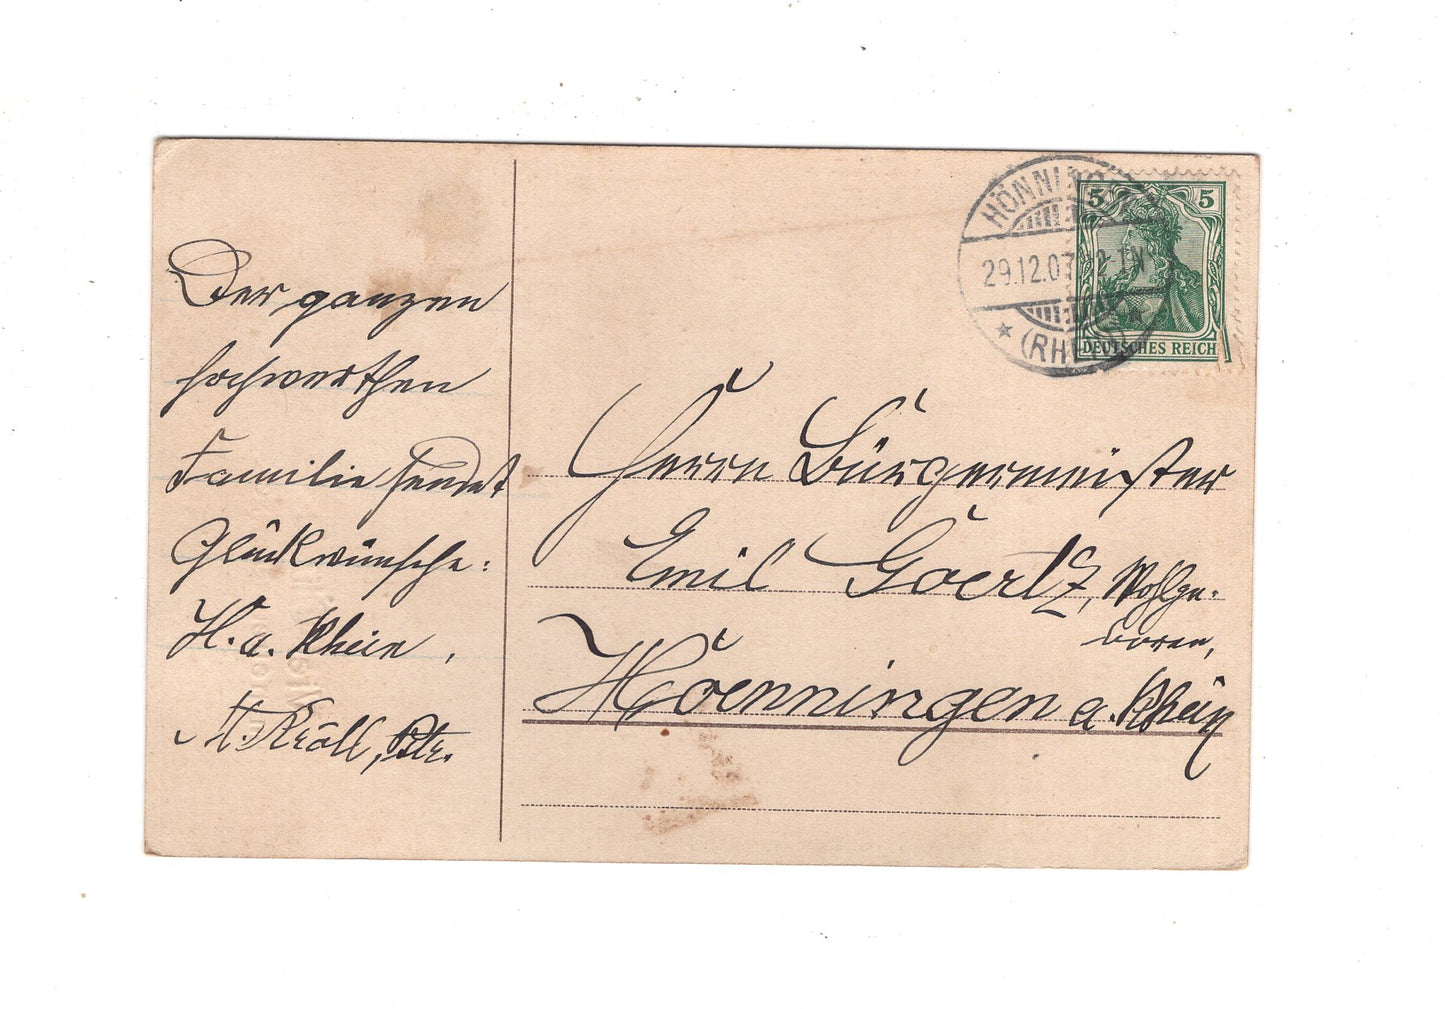 Der ganzen
hochwerthen
Familie sendet
Glückwünsche:
H. a. Rhein,
Kröll,
HÖNNINGEN
29.12.07
(RHEIN)
5 5
DEUTSCHES REICH
Herrn Bürgermeister
Emil Goertz, Wohlge-
boren,
Hoenningen a. Rhein